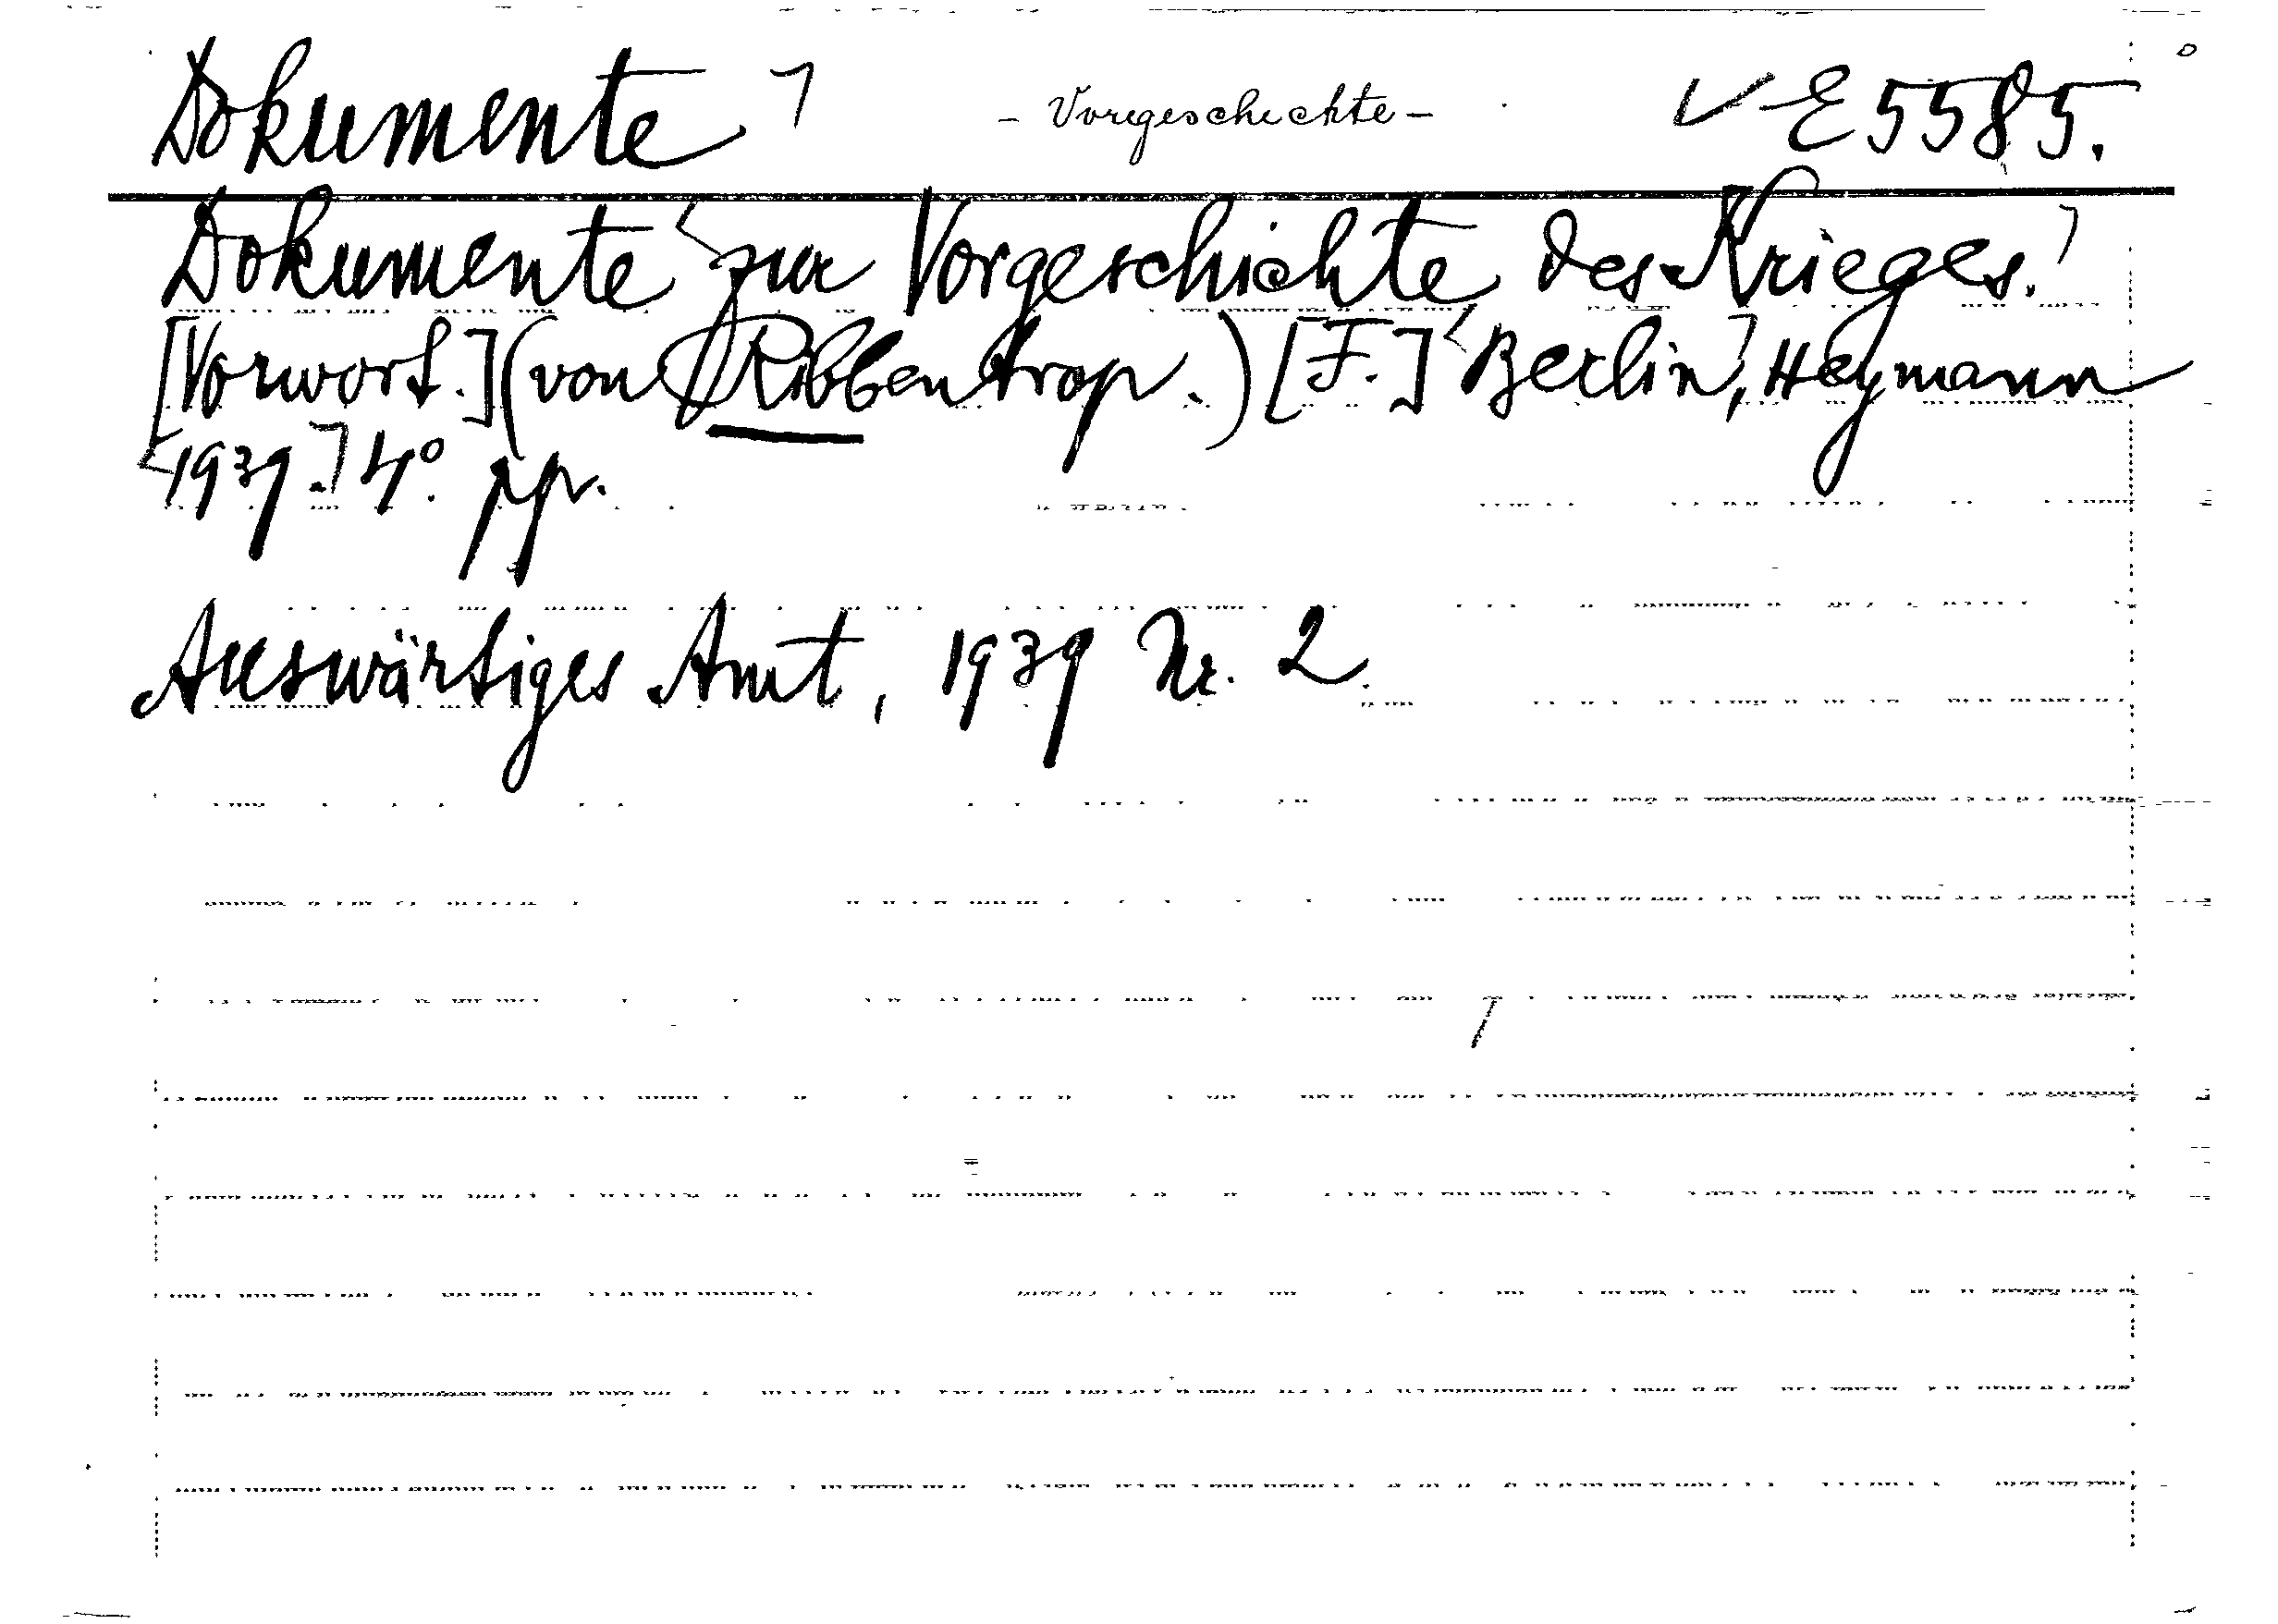 Dokumente ⌉ - Vorgeschichte - ✓ E 5585.
Dokumente zur Vorgeschichte des Krieges.
[Vorwort.] (von Ribbentrop.) [F.] Berlin, Heymann
1939. 4° pp.
Auswärtiges Amt, 1939 Nr. 2.